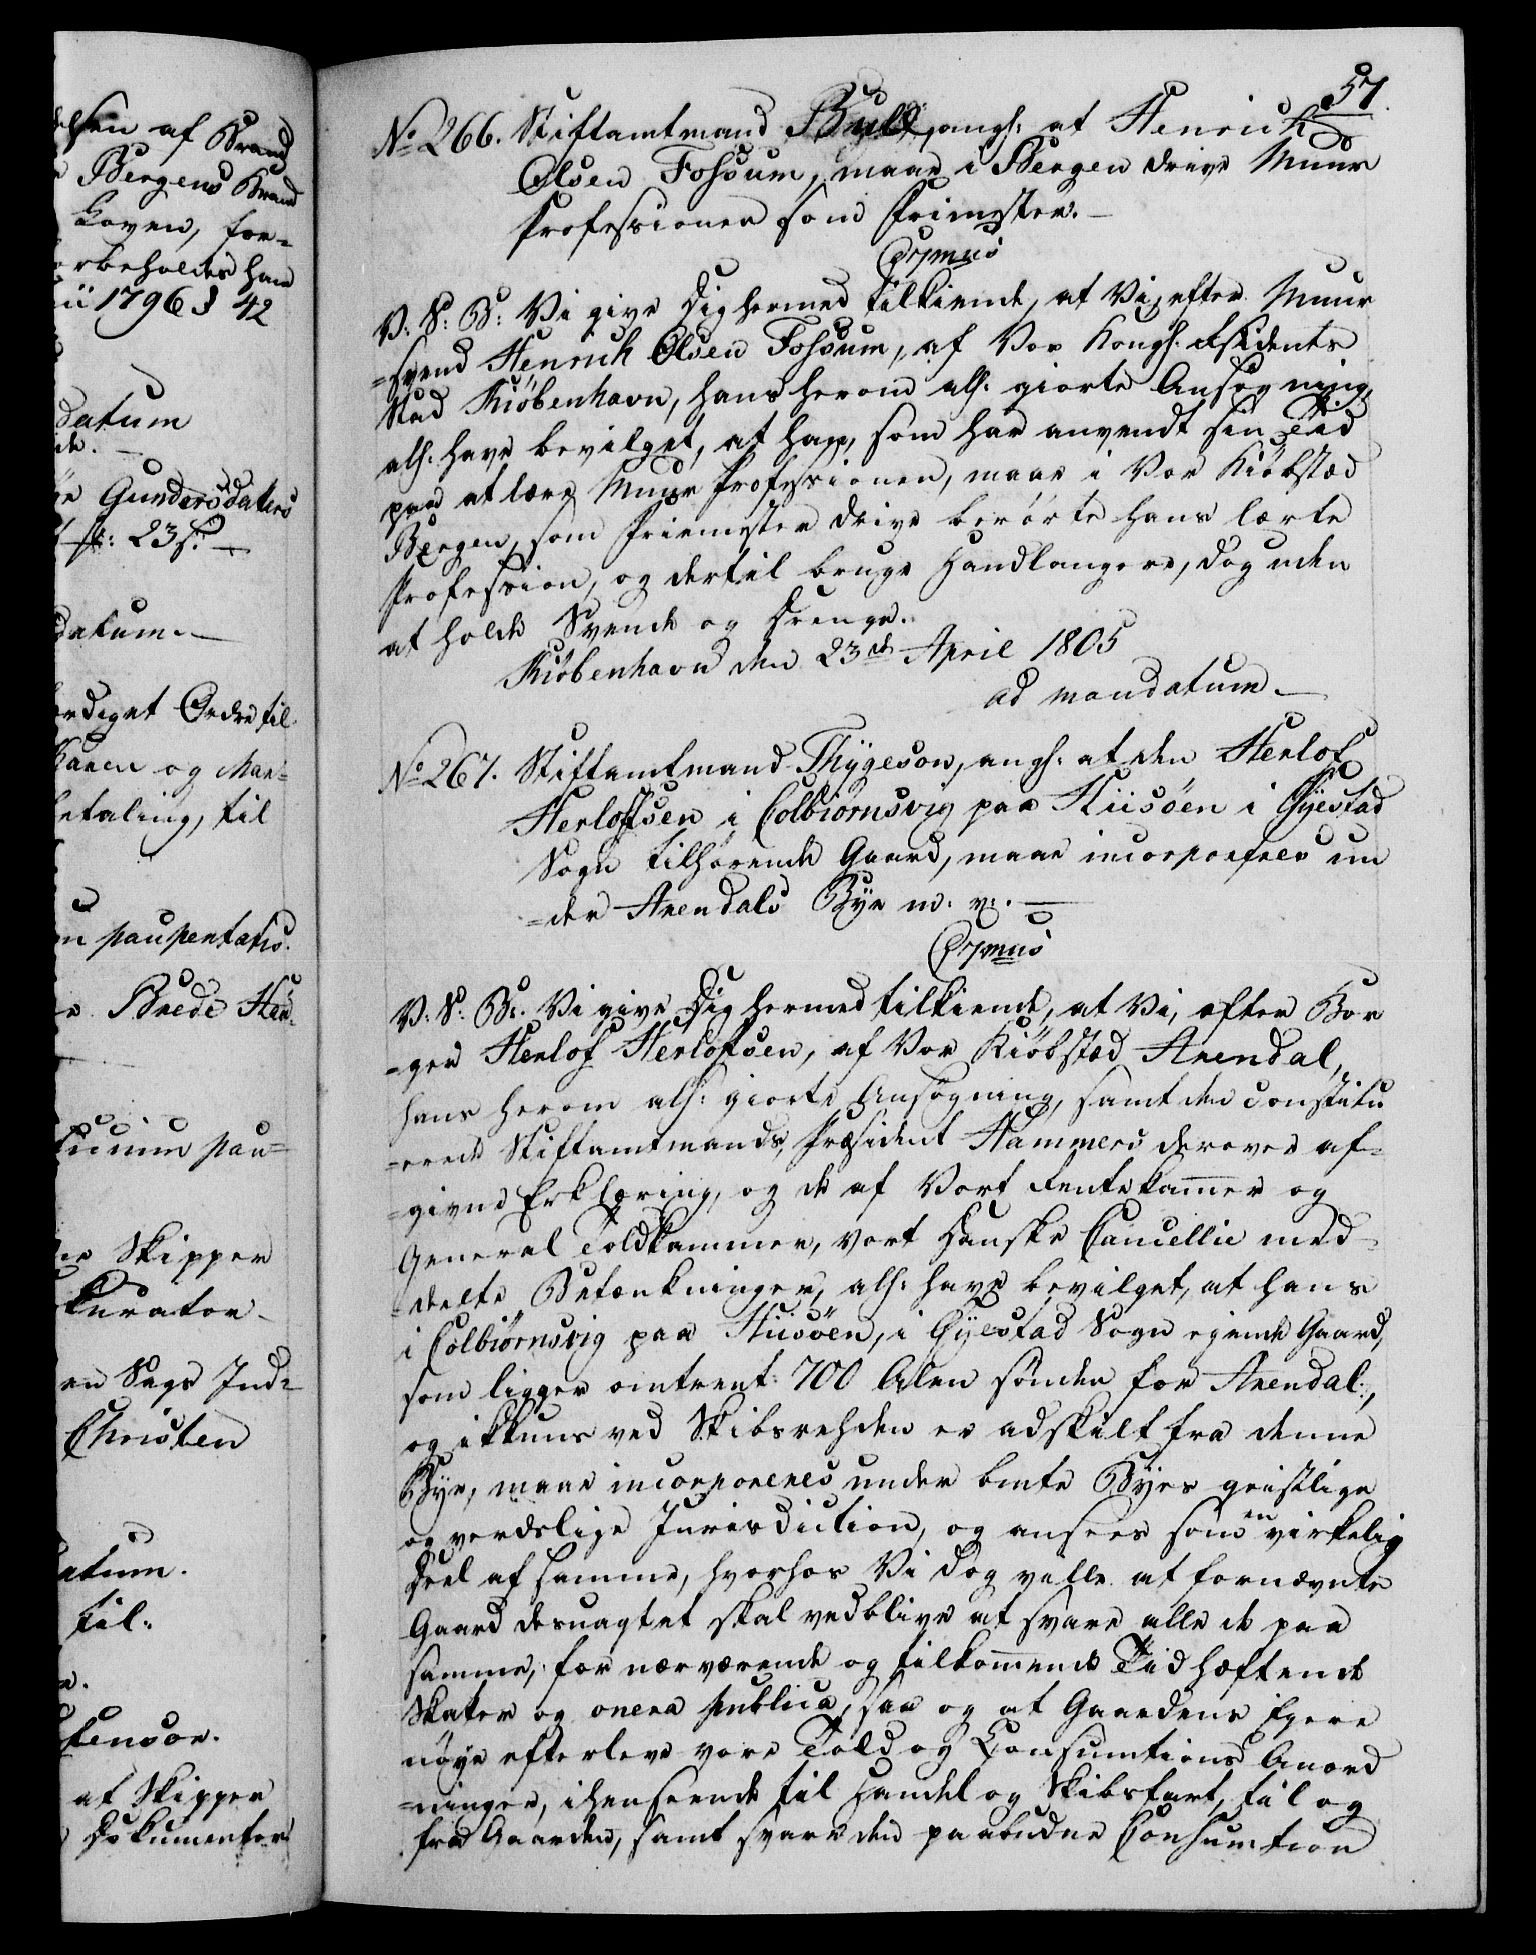 elsen af Brand
Bergens Brand
Loven, for-
orbeholdes han
1796 § 42
datum
de.
Gundersdaters
sk: 23 s.
datum.
ærdiget Ordre til
og Mar-
betaling, til
paupertatis.
Brede Han-
pau-
Skipper
kurator
en Sags Ind-
Christen
datum.
til.
fensor.
at Skipper
Dokumenter
57.
No 266. Stiftamtmand Bull, angl: at Henrich
Olsen Fossum, maae i Bergen drive Muur
Professionen som Friemester.
Copmus
V: S: B: Vi give Dig hermed tilkiende, at Vi, efter Muur
-svend Henrich Olsen Fossum, af Vor Kongl: Residents
Stad Kiøbenhavn, hans herom all: giorte Ansøgning,
all: have bevilget, at han, som har anvendt sin Tid
paa at lære Muur Professionen, maae i Vor Kiøbsted
Bergen, som Friemester drive berørte hans lærte
Profession, og dertil bruge Handlangere, dog uden
at holde Svende og Drenge.
Kiøbenhavn den 23de April 1805
ad mandatum.
No 267. Stiftamtmand Thygeson, angl: at den Herlof
Herlofsen i Colbiørnsvig paa Hiisøen i Øyestad
Sogn tilhørende Gaard, maae incorporeres un
-der Arendals Bye m: v:.
Copmus
V: S: B:. Vi give Dig hermed tilkiende, at Vi, efter Bor
-ger Herlof Herlofsen, af Vor Kiøbsted Arendal,
hans herom all: giorte Ansøgning, samt den constitu
-erede Stiftamtmands, Præsident Hammers derover af-
-givne Erklæring, og de af Vort Rentekammer og
General Toldkammer, Vort Danske Cancellie med-
-deelte Betænkninger, all: have bevilget, at hans
i Colbiørnsvig paa Hiisøen, i Øyestad Sogn eyende Gaard,
som ligger omtrent 700 Alen sønder for Arendal,
og ikkuns ved Skibsrehden er adskilt fra denne
Bye, maae incorporeres under bmte Byes geistlige
og verdslige Jurisdiction, og ansees som en virkelig
Deel af samme, hvorhos Vi dog ville at fornævnte
Gaard desuagtet skal vedblive at svare alle de paa
samme, for nærværende og tilkommende Tid hæftende
Skatter og onera publica, saa og at Gaardens Eyere
nøye efterleve vore Told og Consumtions Anord
-ninger, i henseende til Handel og Skibsfart, til og
fra Gaarden, samt svare den paabudne Consumtion